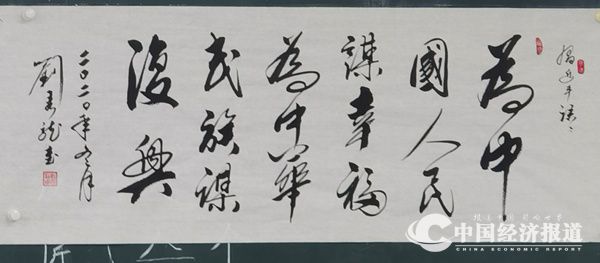 為中
國人民
謀幸福
為中華
民族謀
復興
二〇二〇年冬月
报道中国 影响世界
中国经济报道
CHINA ECONOMIC REPORT